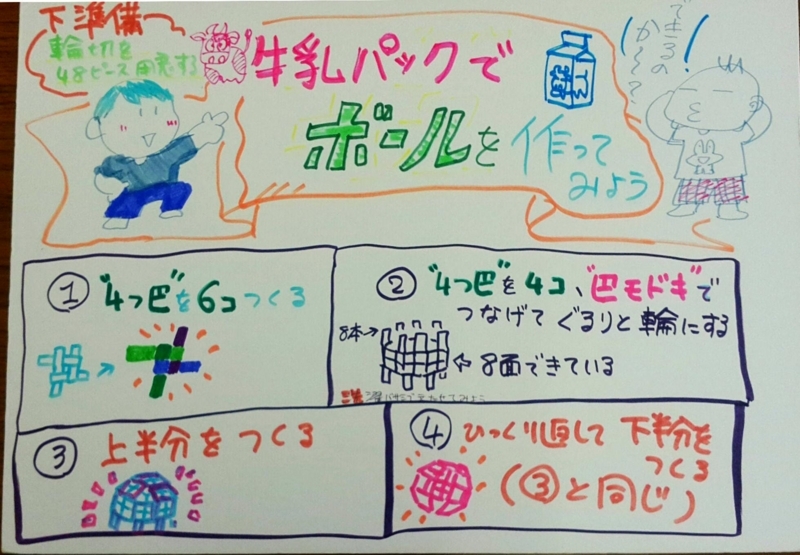 下準備〜
輪切を
48ピース用意する
牛乳パックで
ボールを作って
みよう
できるの
か〜?!
① "4つ巴"を6コつくる
② "4つ巴"を4コ、"巴モドキ"で
つなげてぐるりと輪にする
8本→
⇦8面できている
③ 上半分をつくる
④ ひっくり返して下半分を
つくる
(③と同じ)